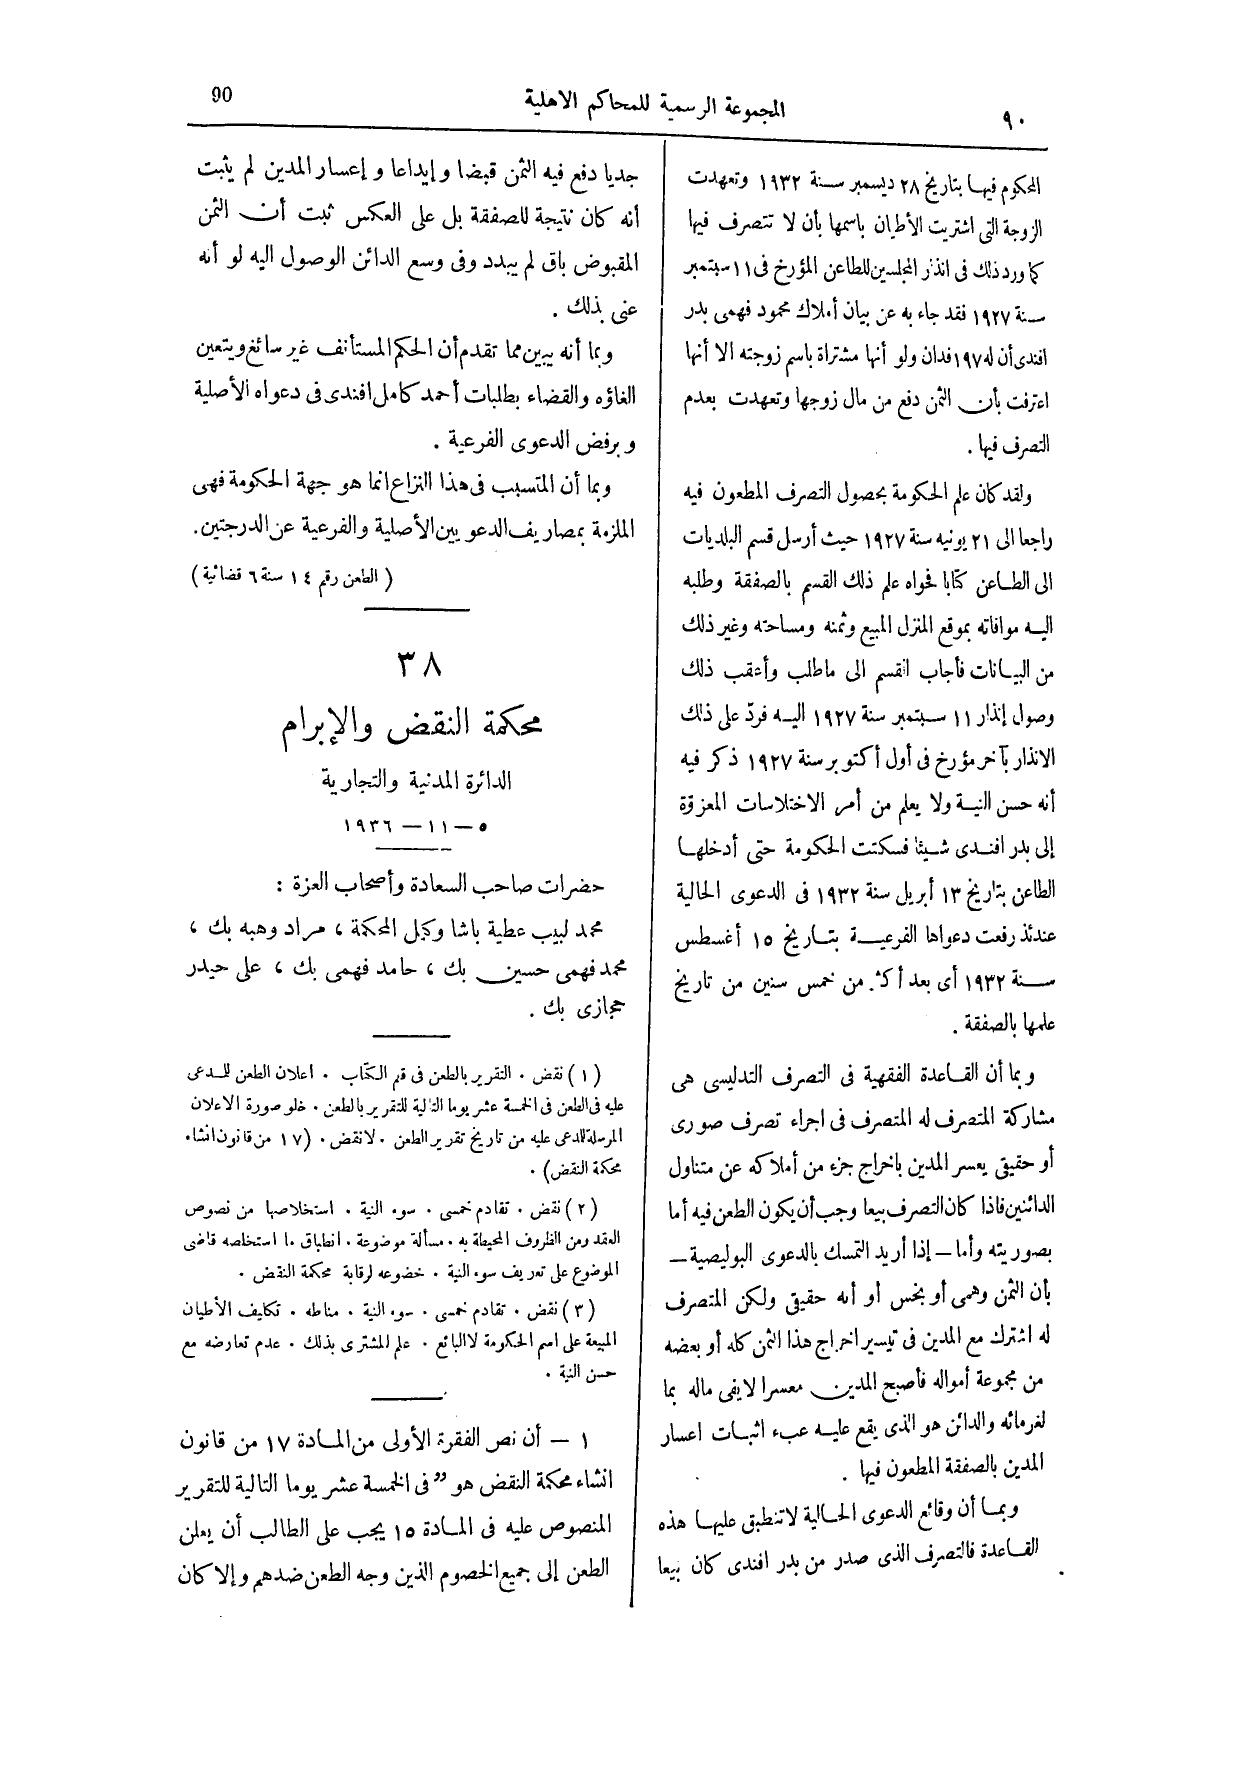 ٩٠
المجموعة الرسمية للمحاكم الاهلية
90
المحكوم فيها بتاريخ ٢٨ ديسمبر سنة ١٩٣٢ وتعهدت
الزوجة التى اشتريت الأطيان باسمها بأن لا تتصرف فيها
كما ورد ذلك فى انذار المجلسين للطاعن المؤرخ فى ١١ سبتمبر
سنة ١٩٢٧ فقد جاء به عن بيان أملاك محمود فهمى بدر
افندى أن له ١٩٧ فدان ولو أنها مشتراة باسم زوجته الا أنها
اعترفت بأن الثمن دفع من مال زوجها وتعهدت بعدم
التصرف فيها .
ولقد كان علم الحكومة بحصول التصرف المطعون فيه
راجعا الى ٢١ يونيه سنة ١٩٢٧ حيث أرسل قسم البلديات
الى الطاعن كتابا فحواه علم ذلك القسم بالصفقة وطلبه
اليه موافاته بموقع المنزل المبيع وثمنه ومساحته وغير ذلك
من البيانات فأجاب القسم الى ماطلب وأعقب ذلك
وصول إنذار ١١ سبتمبر سنة ١٩٢٧ اليه فردّ على ذلك
الانذار بآخر مؤرخ فى أول أكتوبر سنة ١٩٢٧ ذكر فيه
أنه حسن النية ولا يعلم من أمر الاختلاسات المعزوّة
إلى بدر افندى شيئا فسكتت الحكومة حتى أدخلها
الطاعن بتاريخ ١٣ أبريل سنة ١٩٣٢ فى الدعوى الحالية
عندئذ رفعت دعواها الفرعية بتاريخ ١٥ أغسطس
سنة ١٩٣٢ أى بعد أكثر من خمس سنين من تاريخ
علمها بالصفقة .
وبما أن القاعدة الفقهية فى التصرف التدليسى هى
مشاركة المتصرف له المتصرف فى اجراء تصرف صورى
أو حقيقى يعسر المدين باخراج جزء من أملاكه عن متناول
الدائنين فاذا كان التصرف بيعا وجب أن يكون الطعن فيه أما
بصوريته وأما – إذا أريد التمسك بالدعوى البوليصية –
بأن الثمن وهمى أو بخس أو أنه حقيقى ولكن المتصرف
له اشترك مع المدين فى تيسير اخراج هذا الثمن كله أو بعضه
من مجموعة أمواله فأصبح المدين معسرا لا يفى ماله بما
لغرمائه والدائن هو الذى يقع عليه عبء اثبات اعسار
المدين بالصفقة المطعون فيها .
وبما أن وقائع الدعوى الحالية لاتنطبق عليها هذه
القاعدة فالتصرف الذى صدر من بدر افندى كان بيعا
جديا دفع فيه الثمن قبضا و إيداعا و إعسار المدين لم يثبت
أنه كان نتيجة للصفقة بل على العكس ثبت أن الثمن
المقبوض باق لم يبدد وفى وسع الدائن الوصول اليه لو أنه
عنى بذلك .
وبما أنه يبين مما تقدم أن الحكم المستأنف غير سائغ ويتعين
الغاؤه والقضاء بطلبات أحمد كامل افندى فى دعواه الأصلية
و برفض الدعوى الفرعية .
وبما أن المتسبب فى هذا النزاع انما هو جهة الحكومة فهى
الملزمة بمصاريف الدعويين الأصلية والفرعية عن الدرجتين .
( الطعن رقم ١٤ سنة ٦ قضائية )
٣٨
محكمة النقض والإبرام
الدائرة المدنية والتجارية
٥ – ١١ – ١٩٣٦
حضرات صاحب السعادة وأصحاب العزة :
محمد لبيب عطية باشا وكيل المحكمة ، مراد وهبه بك ،
محمد فهمى حسين بك ، حامد فهمى بك ، على حيدر
حجازى بك .
( ١ ) نقض . التقرير بالطعن فى قلم الكتّاب . اعلان الطعن للمدعى
عليه فى الطعن فى الخمسة عشر يوما التالية للتقرير بالطعن . خلو صورة الاعلان
المرسلة للمدعى عليه من تاريخ تقرير الطعن . لا نقض . (١٧ من قانون انشاء
محكمة النقض) .
( ٢ ) نقض . تقادم خمسى . سوء النية . استخلاصها من نصوص
العقد ومن الظروف المحيطة به . مسألة موضوعة . انطباق ما استخلصه قاضى
الموضوع على تعريف سوء النية . خضوعه لرقابة محكمة النقض .
( ٣ ) نقض . تقادم خمسى . سوء النية . مناطه . تكليف الأطيان
المبيعة على اسم الحكومة لا البائع . علم المشترى بذلك . عدم تعارضه مع
حسن النية .
١ – أن نص الفقرة الأولى من المادة ١٧ من قانون
انشاء محكمة النقض هو ” فى الخمسة عشر يوما التالية للتقرير
المنصوص عليه فى المادة ١٥ يجب على الطالب أن يعلن
الطعن إلى جميع الخصوم الذين وجه الطعن ضدهم و إلا كان